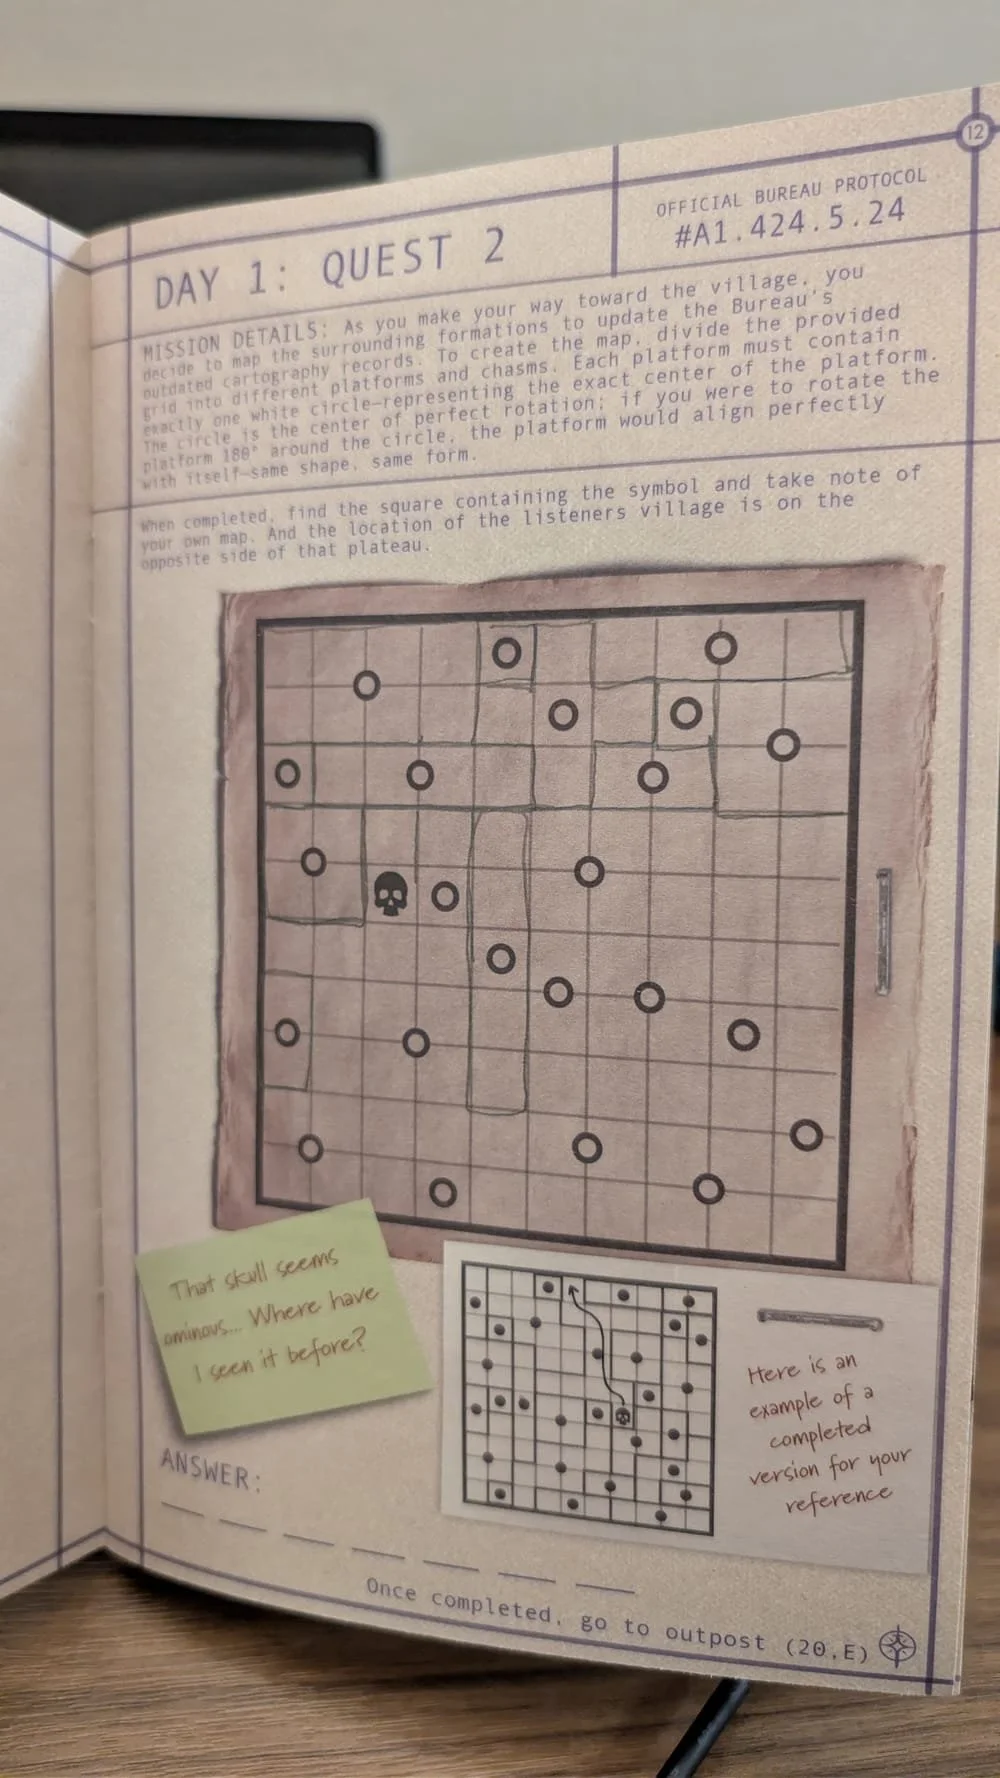 12
DAY 1: QUEST 2
OFFICIAL BUREAU PROTOCOL
#A1.424.5.24
MISSION DETAILS: As you make your way toward the village, you
decide to map the surrounding formations to update the Bureau's
outdated cartography records. To create the map, divide the provided
grid into different platforms and chasms. Each platform must contain
exactly one white circle—representing the exact center of the platform.
The circle is the center of perfect rotation; if you were to rotate the
platform 180° around the circle, the platform would align perfectly
with itself—same shape, same form.
When completed, find the square containing the symbol and take note of
your own map. And the location of the listeners village is on the
opposite side of that plateau.
That skull seems
ominous... Where have
I seen it before?
Here is an
example of a
completed
version for your
reference
ANSWER:
Once completed, go to outpost (20,E)